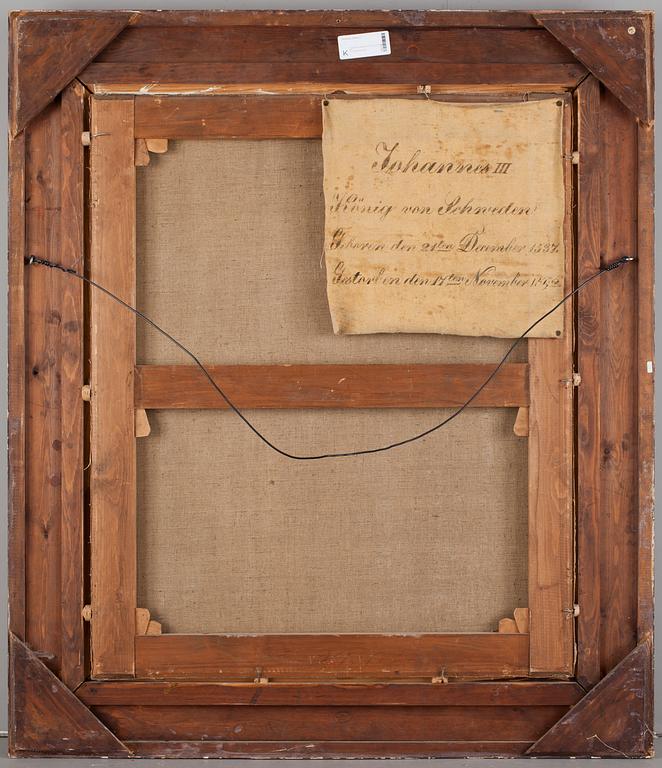 K
Johannes III
König von Schweden
Geboren den 21ten December 1537.
Gestorben den 17ten November